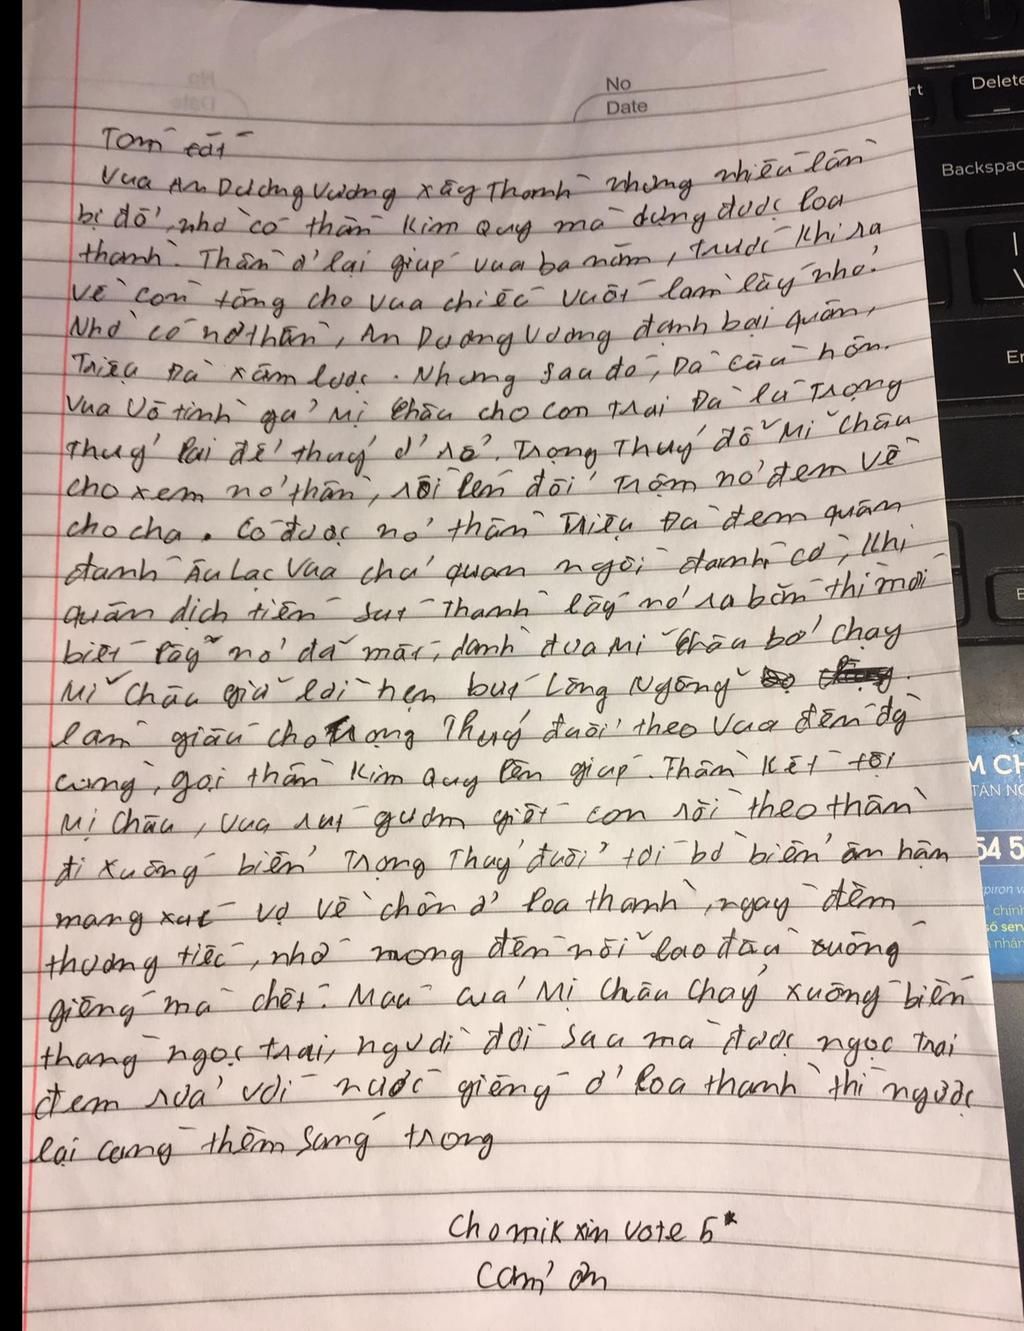 No
Date
Tóm tắt
Vua An Dương Vương xây Thành nhưng nhiều lần
bị đổ, nhờ có thần Kim Quy mà dựng được loa
thành. Thần ở lại giúp vua ba năm, trước khi ra
về còn tặng cho vua chiếc vuốt làm lẫy nhỏ.
Nhờ có nỏ thần, An Dương Vương đánh bại quân,
Triệu Đà xâm lược. Nhưng sau đó, Đà cầu hôn.
Vua vô tình gả Mị Châu cho con trai Đà là Trọng
Thuỷ lại để thuỷ ở rể. Trọng Thuỷ dỗ Mị Châu
cho xem nỏ thần, rồi lén đổi trộm nỏ đem về
cho cha. Có được nỏ thần Triệu Đà đem quân
đánh Âu Lạc Vua chủ quan ngồi đánh cờ, khi
quân địch tiến sát Thành lấy nỏ ra bắn thì mới
biết lẫy nỏ đã mất, đành đưa Mị Châu bỏ chạy
Mị Châu giữ lời hẹn bứt Lông Ngỗng
làm giấu cho Trọng Thuỷ đuổi theo Vua đến đg
cùng, gọi thần Kim Quy lên giúp. Thần Kết tội
Mị Châu, vua rút gươm giết con rồi theo thần
đi xuống biển Trọng Thuỷ đuổi tới bờ biển ân hận
mang xác vợ về chôn ở loa thành, ngày đêm
thương tiếc, nhớ mong đến nỗi lao đầu xuống
giếng mà chết. Máu của Mị Châu chảy xuống biển
thang ngọc trai, người đời sau mà được ngọc trai
đem rửa với nước giếng ở loa thành thì ngược
lại càng thêm sáng trong
Cho mik xin vote 5*
Cảm ơn
Delete
Backspac
M CH
TÂN NG
54 5